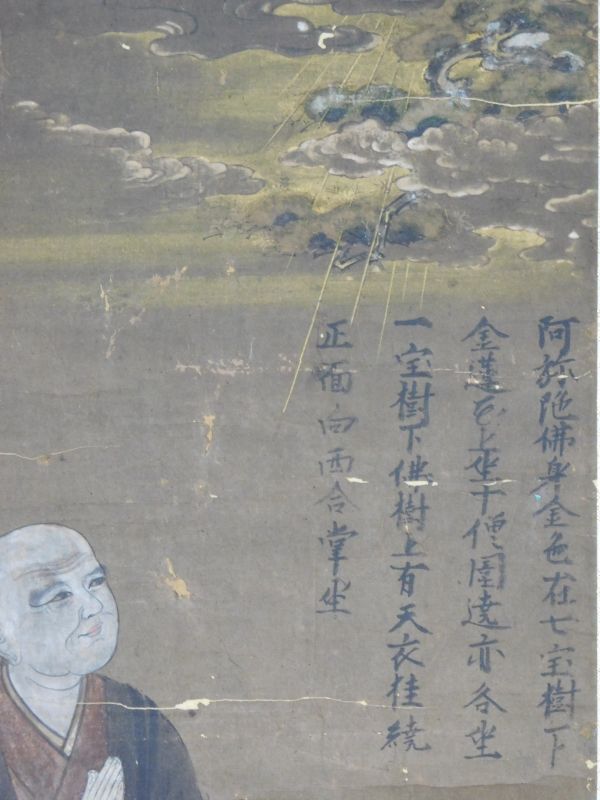 阿弥陁佛身金色在七宝樹下
金蓮花上坐十僧圍遶亦各坐
一宝樹下佛樹上有天衣挂繞
正面向西合掌坐